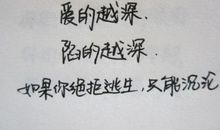 爱的越深.
陷的越深.
如果你绝拒逃生,只能沉沦